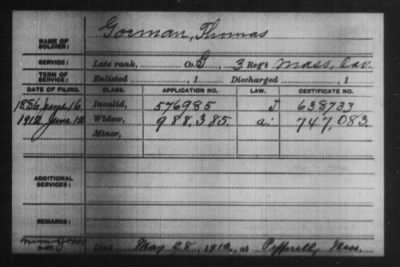 NAME OF SOLDIER: Gorman, Thomas
SERVICE: Late rank, Co. G, 3 Reg't Mass. Cav.
TERM OF SERVICE: Enlisted , 1 Discharged , 1
DATE OF FILING. CLASS. APPLICATION NO. LAW. CERTIFICATE NO.
1886, Sept 16 Invalid, 576985 J 638733
1912 June 12 Widow, 988,385. a. 747,083.
Minor,
ADDITIONAL SERVICES:
REMARKS:
Died May 28, 1912, at Pepperell, Mass.